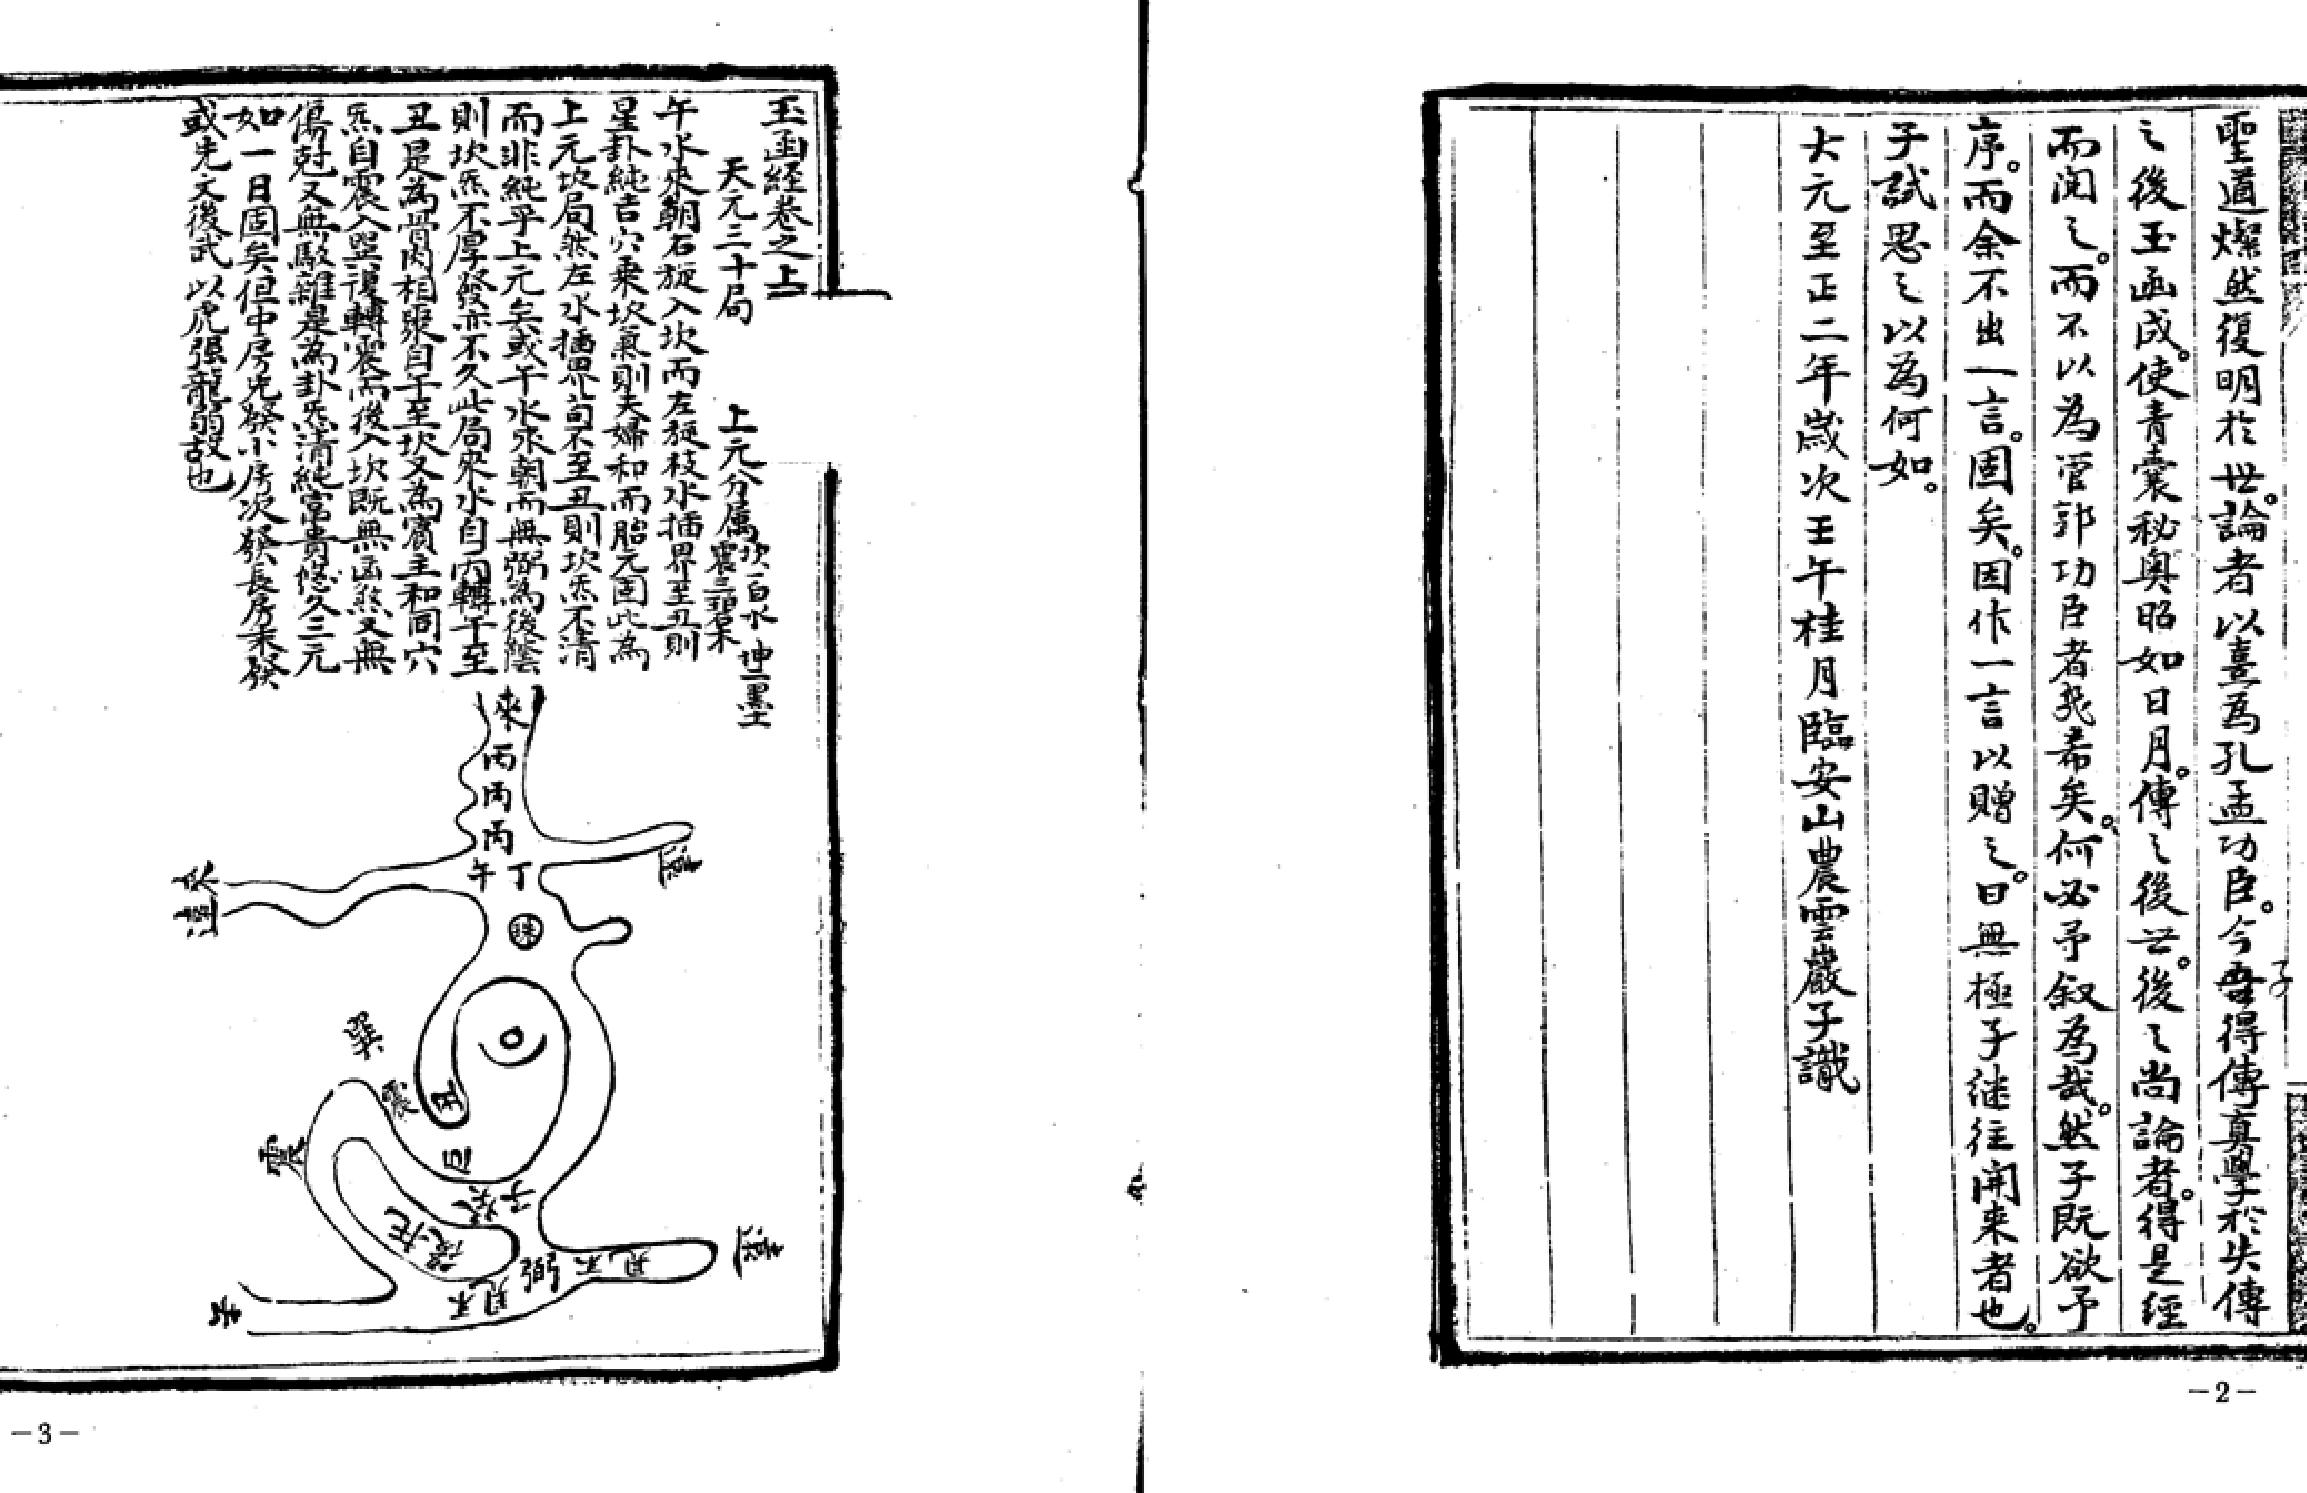 聖道燦然復明於世。論者以喜為孔孟功臣。今吾子得傳真學於失傳
之後玉函成。使青囊秘奧昭如日月。傳之後世。後之尚論者。得是經
而閱之。而不以為管郭功臣者幾希矣。何必予叙為哉。然子既欲予
序。而余不出一言。固矣。因作一言以贈之。曰無極子继往開来者也。
子試思之以為何如。
大元至正二年歲次壬午桂月臨安山農雲巖子識
-2-
玉函経卷之上
天元三十局 上元分属 坎一白水 坤二黑土 震三碧木
午水來朝右旋入坎而左旋枝水插界至丑則
星卦純吉穴乗坎氣則夫婦和而胎元固此為
上元坎局然左水插界苟不至丑則坎炁不清
而非純乎上元矣或午水來朝而無弼為後蔭
則坎炁不厚發亦不久此局來水自丙轉午至
丑是為骨肉相聚自午至坎又為賓主和同穴
炁自震入巽復轉震而後入坎既無凶煞又無
傷尅又無駁雜是為卦炁清純富貴悠久三元
如一日固矣但中房先發小房次發長房末發
或先文後武以虎强龍弱故也
來
丙
丙
丙
午丁
珠
巽
震
丑
震
子癸
弼
不見
不見
-3-